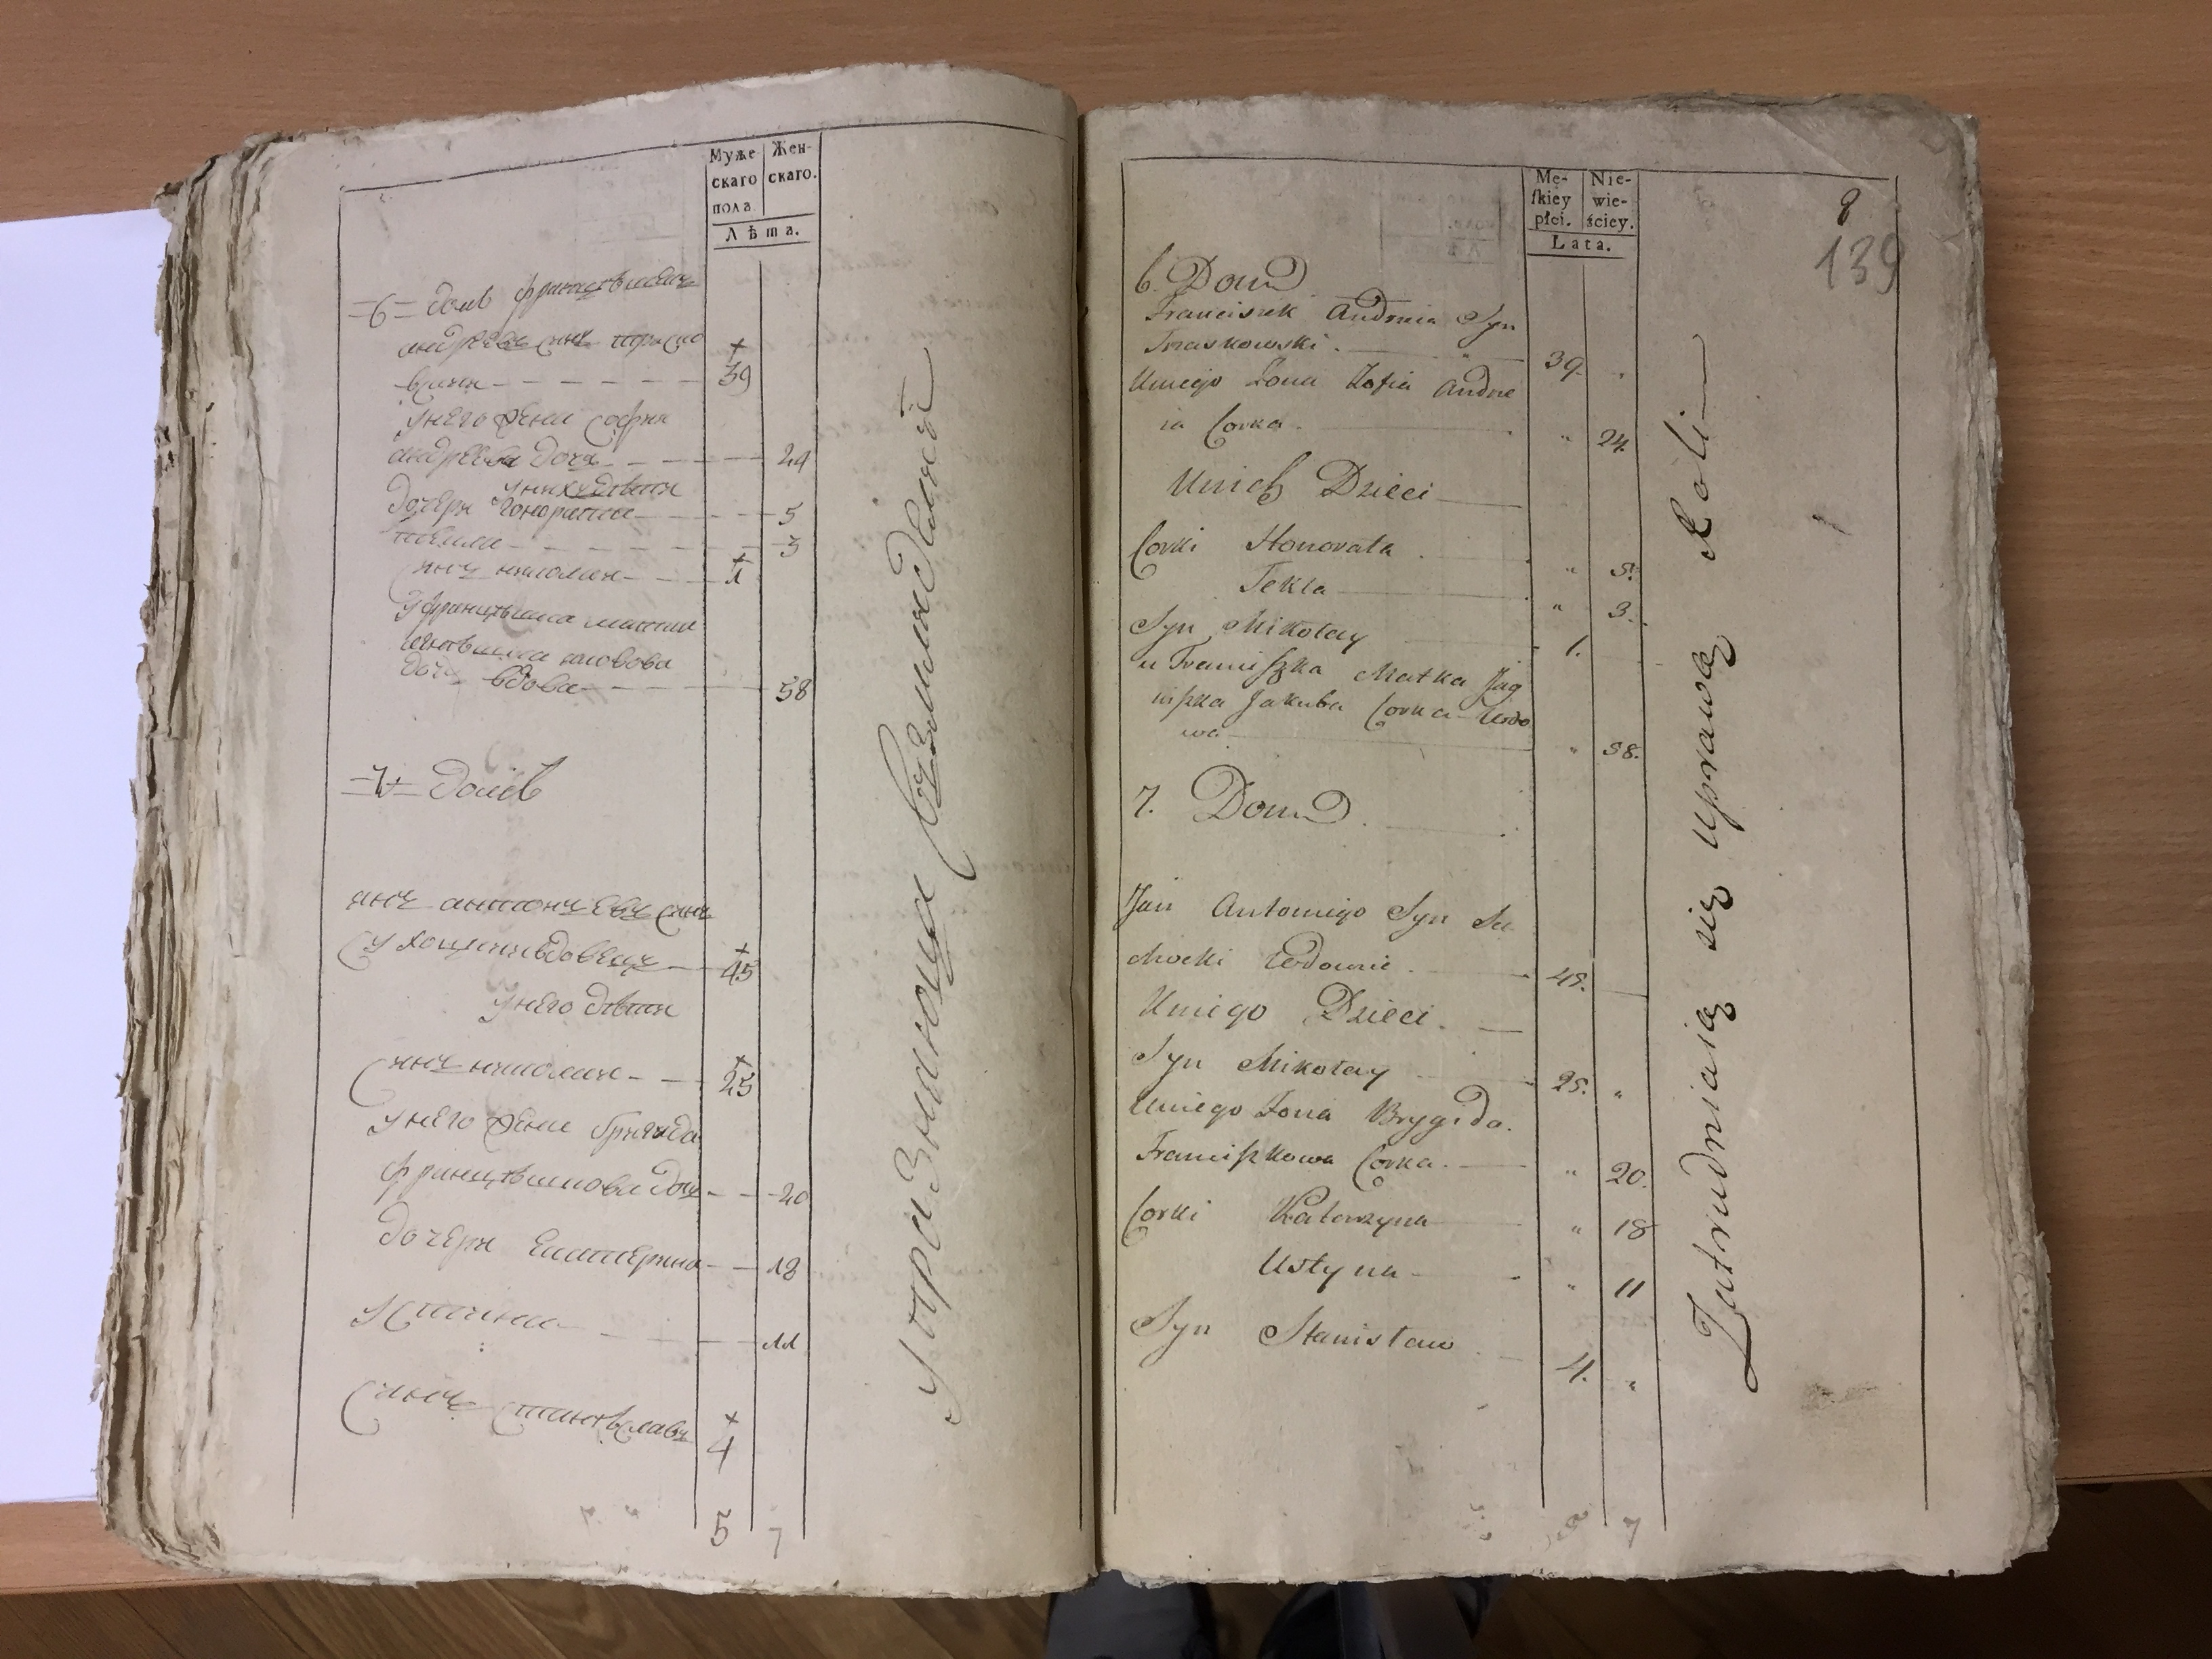 Муже
скаго
пола
Жен-
скаго.
Лѣта.
=6= домъ францѣшекъ
андрѣевъ синъ траско
вскии 39
унего жена софия
андрѣева дочъ 24
унихъ дѣти
дочери гонората 5
текля 3
синъ николаи 1
у францѣшка матка
якова
дочъ вдова 58
=7= домъ
янъ антонъевъ синъ
сухоцкии вдовецъ 45
унего дѣти
синъ николаи 25
унего жена бригида
францѣшкова дочъ 20
дочери екатерина 18
устина 11
синъ станѣславъ 4
5 7
упразнаюца
Mę-
ſkiey
płci.
Nie-
wie-
ściey.
Lata.
8
139
6. Dom
Franciszek Andrzeia Syn
Traskowski. 39.
Uniego Zona Zofia Andrze
ia Corka. " 24.
Unich Dzieci
Corki Honorata " 5.
Tekla " 3.
Syn Mikołay 1.
u Franciſzka Matka Jag
niſzka Jakuba Corka Wdo
wa " 58.
7. Dom
Jan Antoniego Syn Su
chocki Wdowiec 45.
Uniego Dzieci.
Syn Mikołay 25. "
Uniego Zona Brygida.
Franciſzkowa Corka. " 20.
Corki Katarzyna " 18
Ustyna " 11
Syn Stanisław 4. "
7
Zatrudniaią się uprawą Roli